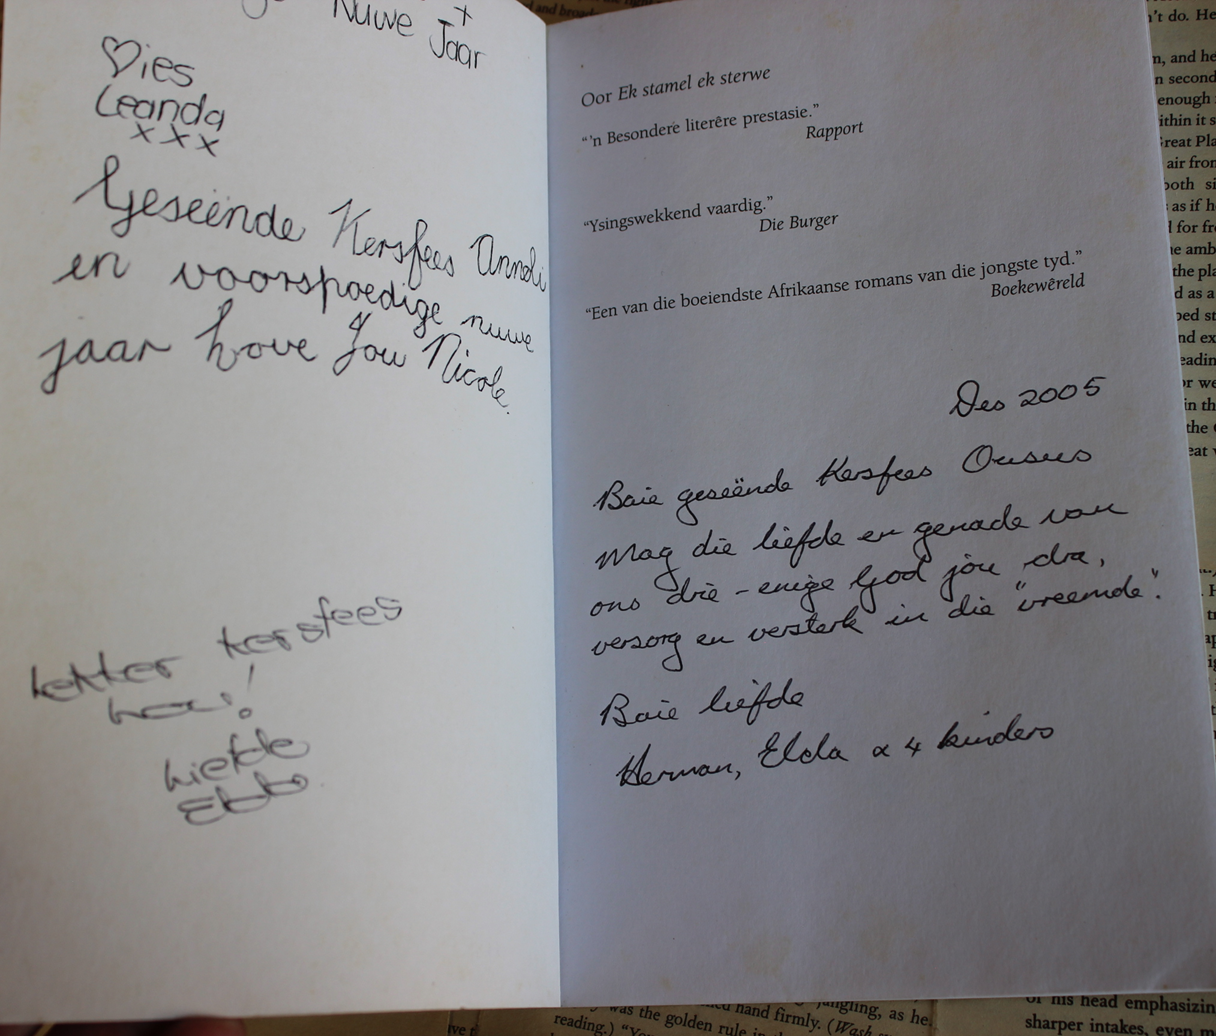 Nuwe + Jaar
♡ies
Leanda
xxx
Geseënde Kersfees
en voorspoedige nuwe
jaar Love Jou Nicole.
Lekker Kersfees
hou!
Liefde
Oor Ek stamel ek sterwe
“’n Besondere literêre prestasie.”
Rapport
“Ysingswekkend vaardig.”
Die Burger
“Een van die boeiendste Afrikaanse romans van die jongste tyd.”
Boekewêreld
Des 2005
Baie geseënde Kersfees Ousus
Mag die liefde en genade van
ons drie-enige God jou dra,
versorg en versterk in die "vreemde".
Baie liefde
Herman, Elda & 4 kinders
't do. He
and he
second
enough
ithin it s
reat Pla
air from
both si
as if h
for fr
e amb
the pla
as a
nd ex
eadin
or we
in th
the
was the golden rule in
hand firmly. (Wash
jangling, as he
reading.) “Yo
of his head emphasizin
sharper intakes, even m